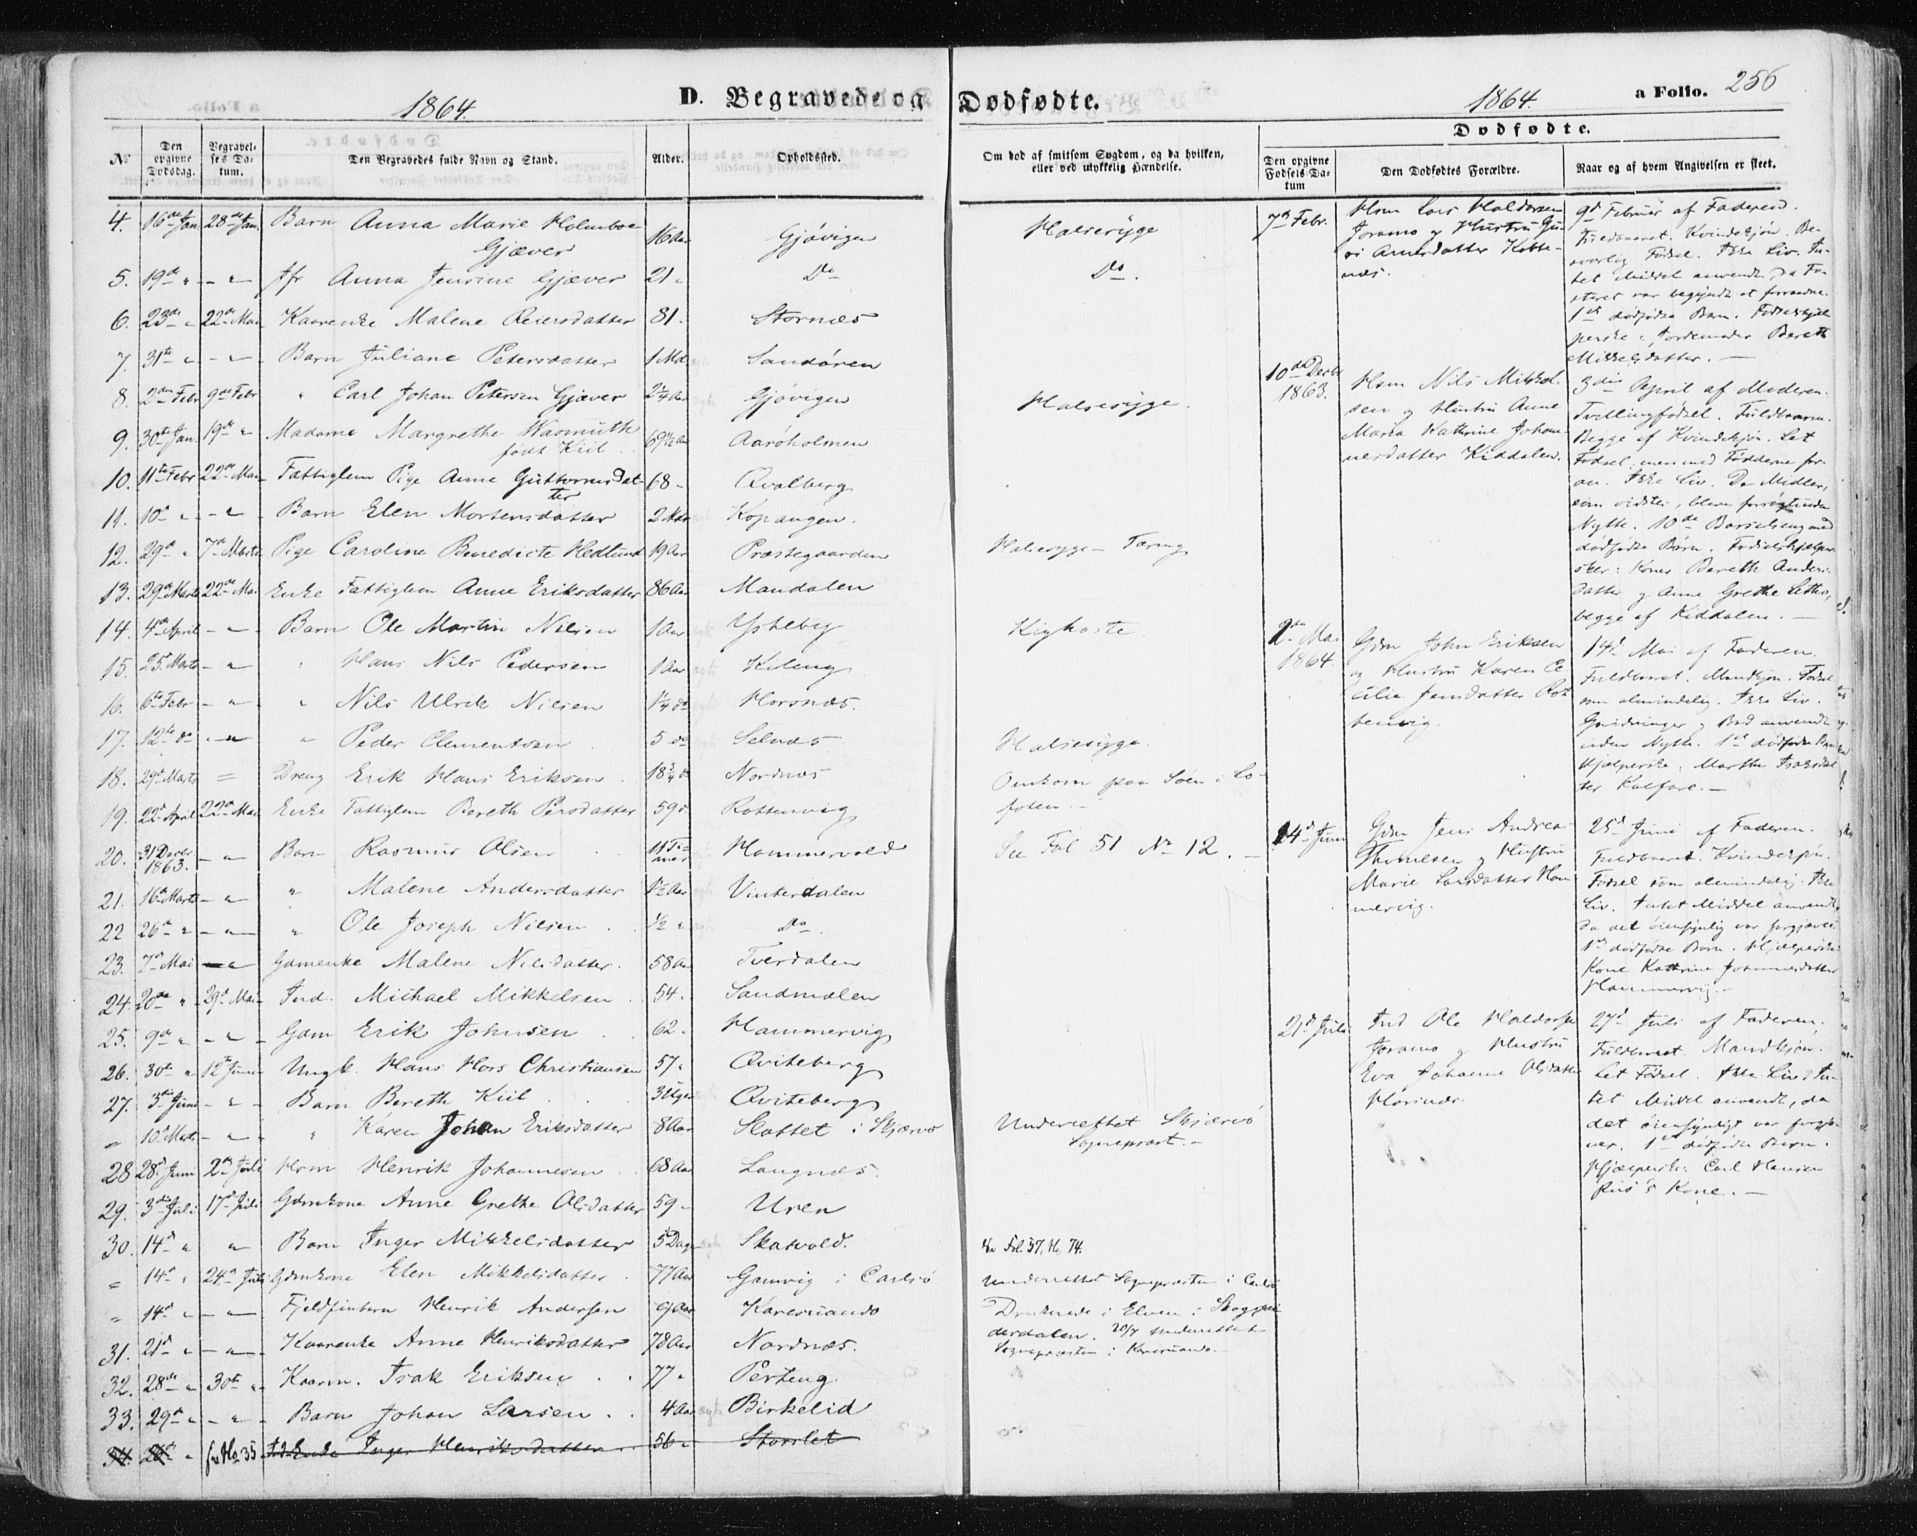 1864.
D. Begravede og Dødfødte.
1864.
a Folio. 256
No
Den opgivne Dødsdag.
Begravelses Datum.
Den Begravedes fulde Navn og Stand.
Alder.
Opholdssted.
Om død af smitsom Sygdom, og da hvilken, eller ved ulykkelig Hændelse.
Dødfødte.
Den opgivne Fødsels Datum
Den Dødfødtes Forældre.
Naar og af hvem Angivelsen er skeet.
4. 16de Jan 28de Jan. Barn Anna Marie Holmboe Gjæver 16 Aar Gjøvigen Halsesyge
5. 19de " - " - Jfr Anna Jensine Gjæver 21 " Do Do.
6. 23de " 22de Mai Kaarenke Malene Reiersdatter 81. Stornæs
7. 31te " - " - Barn Juliane Petersdatter 1 Md. Sandøren
8. 2den Febr 9de Febr " Carl Johan Petersen Gjæver 2¼ Aar Gjøvigen Halsesyge.
9. 30te Jan. 19de " Madame Margrethe Wasmuth født Kiil 69½ Aar Aarøholmen
10. 11te Febr 22de Mai Fattiglem Pige Anne Guttormsdatter 68 - Qvalberg
11. 10de " - " - Barn Elen Mortensdatter 2 Mdr Kopangen.
12. 29de " 7de Marts Pige Caroline Benedicte Hedlund 19 Aar Præstegaarden Halsesyge - Tæring
13. 29de Marts 22de Mai Enke Fattiglem Anne Eriksdatter 86 Aar Mandalen
14. 4de April - " - Barn Ole Martin Nilsen 1 Aar Ysteby Kighoste.
15. 25de Marts - " " Hans Nils Pedersen 1 Aar Kileng
16. 6te Febr - " " Nils Ulrik Nilsen 1¼ do Horsnæs.
17. 12te do - " " Peder Clementsen 5 do Selnæs Halsesyge.
18. 29de Marts = Dreng Erik Hans Eriksen 18¾ do Nordnæs Omkom paa Søen i Lofoten. -
19. 22de April 22de Mai Enke Fattiglem Bereth Persdatter 59 do Rottenvig
20. 31 Decbr. 1863. - " Barn Rasmus Olsen 11 Timer Hammervold See Fol 51 No 12. -
21. 16de Marts - " - " Malene Andersdatter 1½ Aar Vinterdalen
22 26de " - " - " Ole Joseph Nilsen ½ " Do.
23. 7de Mai - " Gamenke Malene Nilsdatter. 58 Aar Tverdalen
24. 20de " 29de Mai Ind. Michael Mikkelsen 54. Sandmælen
25. 9de " - " - Gam Erik Johnsen 62. Hammervig
26. 30te " 12te Juni Ungk. Hans Hors Christiansen 57. Qviteberg
27. 3die Juni - " - Barn Bereth Kiil 3 Uger Qviteberg
" 10de Marts - " - " Karen Johan Eriksdatter 8 Aar Slottet i Skjærvø Underrettet Skjærvø Sognepræst. -
28 28de Juni 2den Juli Hsm Henrik Johannesen 68 Aar Langnæs.
29. 3die Juli 17de Juli Gdmkone Anne Grethe Olsdatter 59 - Uren
30. 14de " " Barn Inger Mikkelsdatter 5 Dage Skatvold. Fol 37, No 74.
" 14de " 24de Juli Gdmkone Elen Mikkelsdatter. 77 Aar Gamvig i Carlsø Underrettet Sognepræsten i Carlsø
" 14de " - " - Fjeldfinbarn Henrik Andersen 9 Aar Karesuando Druknede i Elven i Skoggenderdalen. 20/7 Underrettet Sognepræsten i Karesuando.
31. 21de " - " - Kaarenke Anne Henriksdatter 78 Aar Nordnæs.
32. 28de " 30te " Kaarm. Isak Eriksen 77 " Perteng
33. 29de " - " - Barn Johan Larsen 4 Aar Birkelid
34. 20de " No 35 Enke Inger Henriksdatter 56 - Storslet
7de Febr. Hsm Lars Haldorsen Joramo og Hustru Guri Arnesdatter Kottenæs.
9de Februar af Faderen. Fuldbaaret. Kvindekjøn. Besværlig Fødsel. Ikke Liv. Intet Middel anvendt, da Fosteret var begyndt at forraadne. 1ste dødfødte Barn. Fødselshjælperske, Jordemoder Bereth Mikkelsdatter. -
10de Decbr 1863. Hsm Nils Mikkelsen og Hustru Anne Maria Kathrine Johannesdatter Kiddalen.
3die April af Moderen. Tvillingfødsel. Fuldbaarne. Begge af Kvindekjøn. Let Fødsel, men med Fødderne foran. Ikke Liv. De Midler, som vidstes, bleve forsøgt uden Nytte. 10de Barselseng med dødfødte Børn. Fødselshjælpersker: Koner Bereth Andersdatter og Anne Grethe Larsd, begge af Kiddalen. -
2den Mai 1864. Gdm John Eriksen og Hustru Karen Cecilie Jensdatter Rottenvig.
14de Mai af Faderen. Fuldbaaret. Mandkjøn. Fødsel som almindelig. Ikke Liv. Gnidninger og Bad anvendt uden Nytte. 1ste dødfødte Barn Hjælperske, Marthe Isaksdatter Kalfare. -
14de Juni Gdm Jens Andreas Thomesen og Hustru Marie Larsdatter Hammervig.
25de Juni af Faderen. Fuldbaaret. Kvindekjøn. Fødsel som almindelig. Ikke Liv. Intet Middel anvendt, da det øiensynlig var forgjæves. 1ste dødfødte Barn. Hjælperske Kone Kathrine Johannesdatter Hammervig. -
21de Juli Ind Ole Haldorsen Joramo og Hustru Eva Johanne Olsdatter Horsnæs.
27de Juli af Faderen. Fuldbaaret. Mandkjøn. Let Fødsel. Ikke Liv. Intet Middel anvendt, da det øiensynligt var forgjæves. 1ste dødfødte Barn. Hjælperske: Carl Hansen Riis's Kone. -